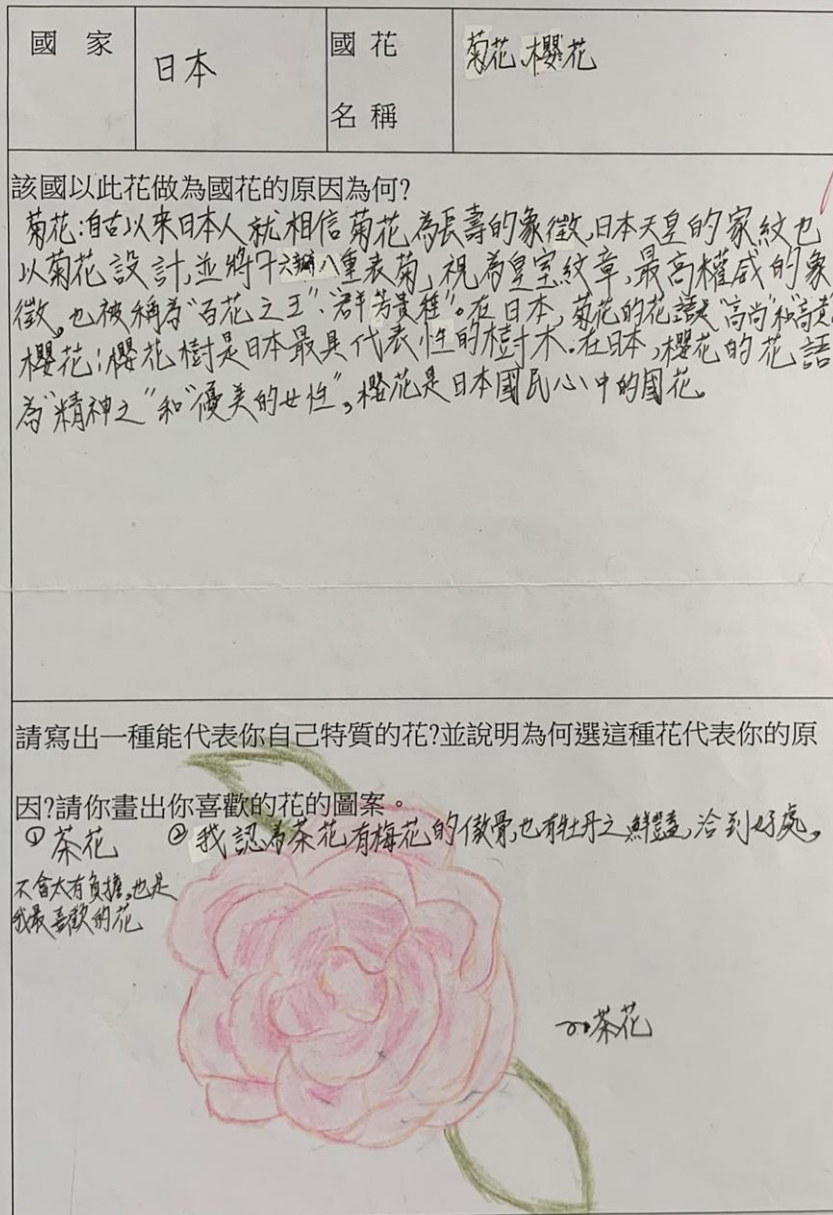 國家
日本
國花
名稱
菊花、櫻花
該國以此花做為國花的原因為何?
菊花:自古以來日本人就相信菊花為長壽的象徵,日本天皇的家紋也
以菊花設計,並將「十六瓣八重表菊」視為皇室紋章,最高權威的象
徵。也被稱為"百花之王"、"群芳貴種"。在日本,菊花的花語是"高尚"和"高貴"。
櫻花:櫻花樹是日本最具代表性的樹木.在日本,櫻花的花語
為"精神之"和"優美的女性",櫻花是日本國民心中的國花。
請寫出一種能代表你自己特質的花?並說明為何選這種花代表你的原
因?請你畫出你喜歡的花的圖案。
①茶花 ②我認為茶花有梅花的傲骨,也有牡丹之鮮豔,洽到好處。
不會太有負擔,也是
我最喜歡的花
茶花